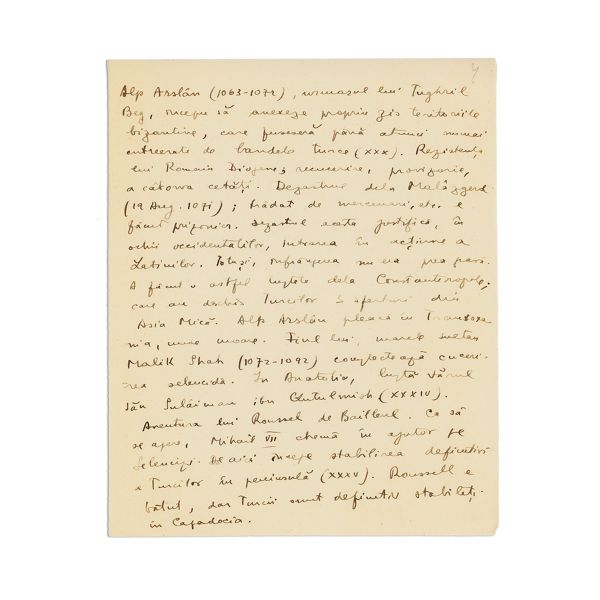 4
Alp Arslân (1063-1072), urmasul lui Tughril
Beg, începu să anexeze propriu zis teritoriile
bizantine, care fuseseră până atunci numai
cutreerate de bandele turce (XXX). Rezistența
lui Romain Diogene; recucerire, provizorie,
a câtorva cetăți. Dezastrul dela Malâzgerd
(19 Aug. 1071); trădat de mercenari, etc. e
făcut prizonier. Dezastrul acesta justifică, în
ochii occidentalilor, intrarea în acțiune a
Latinilor. Totuși, înfrângerea nu era prea
A făcut astfel luptele dela Constantinopole,
care au deschis Turcilor din
Asia Mică. Alp Arslân pleacă în Transoxa-
nia, unde moare. Fiul lui, marele sultan
Malik Shah (1072-1092) complectează cuceri-
rea selencidă. În Anatolia, luptă vărul
său Sulâiman ibn Qutulmish (XXXIV).
Aventura lui Roussel de Bailleul. Ca să
se apere, Mihail VII chemă în ajutor pe
Selencizi. De aici începe stabilirea definitivă
a Turcilor în peninsulă (XXXV). Roussell e
bătut, dar Turcii sunt definitiv stabiliți
în Capadocia.